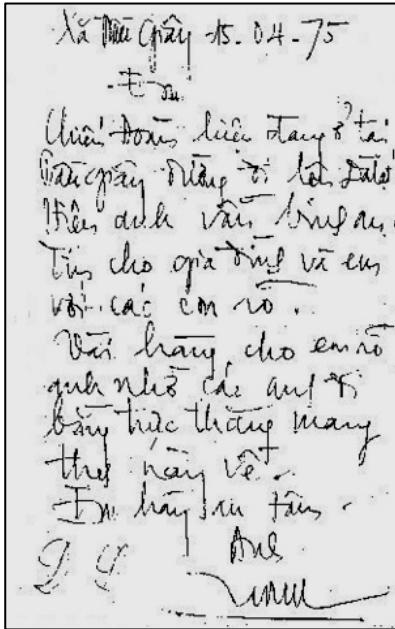 Xã Dầu Giây 15-04-75
Em
Chiến Đoàn hiện đang ở tại
Dầu Giây đường đi lên Dalat
Hiện anh vẫn bình an.
Tin cho gia đình và em
với các con rõ.
Vài hàng cho em rõ
anh nhờ các anh đi
bằng trực thăng mang
thư này về.
Em hãy an tâm.
Anh